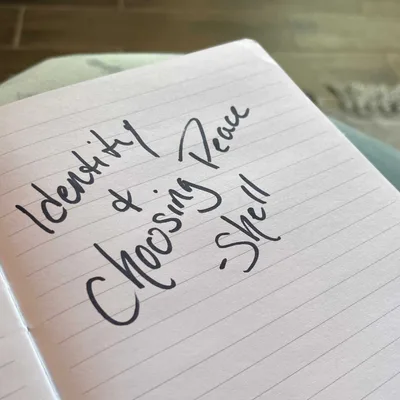 Identity
&
Choosing Peace
-Shell